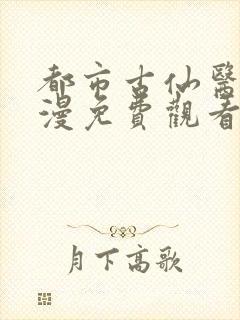 都市古仙醫
漫免費觀看
月下高歌